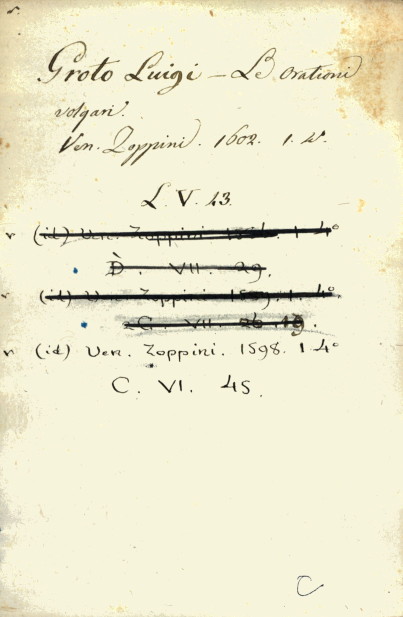 Groto Luigi – Le orationi
volgari.
Ven. Zoppini. 1602. 1. 4°.
L. V. 43.
v (id) Ven. Zoppini 1 4°
D. VII. 29.
v (id) Ven. Zoppini 1 4°
C. VII. 26
v (id) Ven. Zoppini. 1598. 1 4°
C. VI. 45.
C